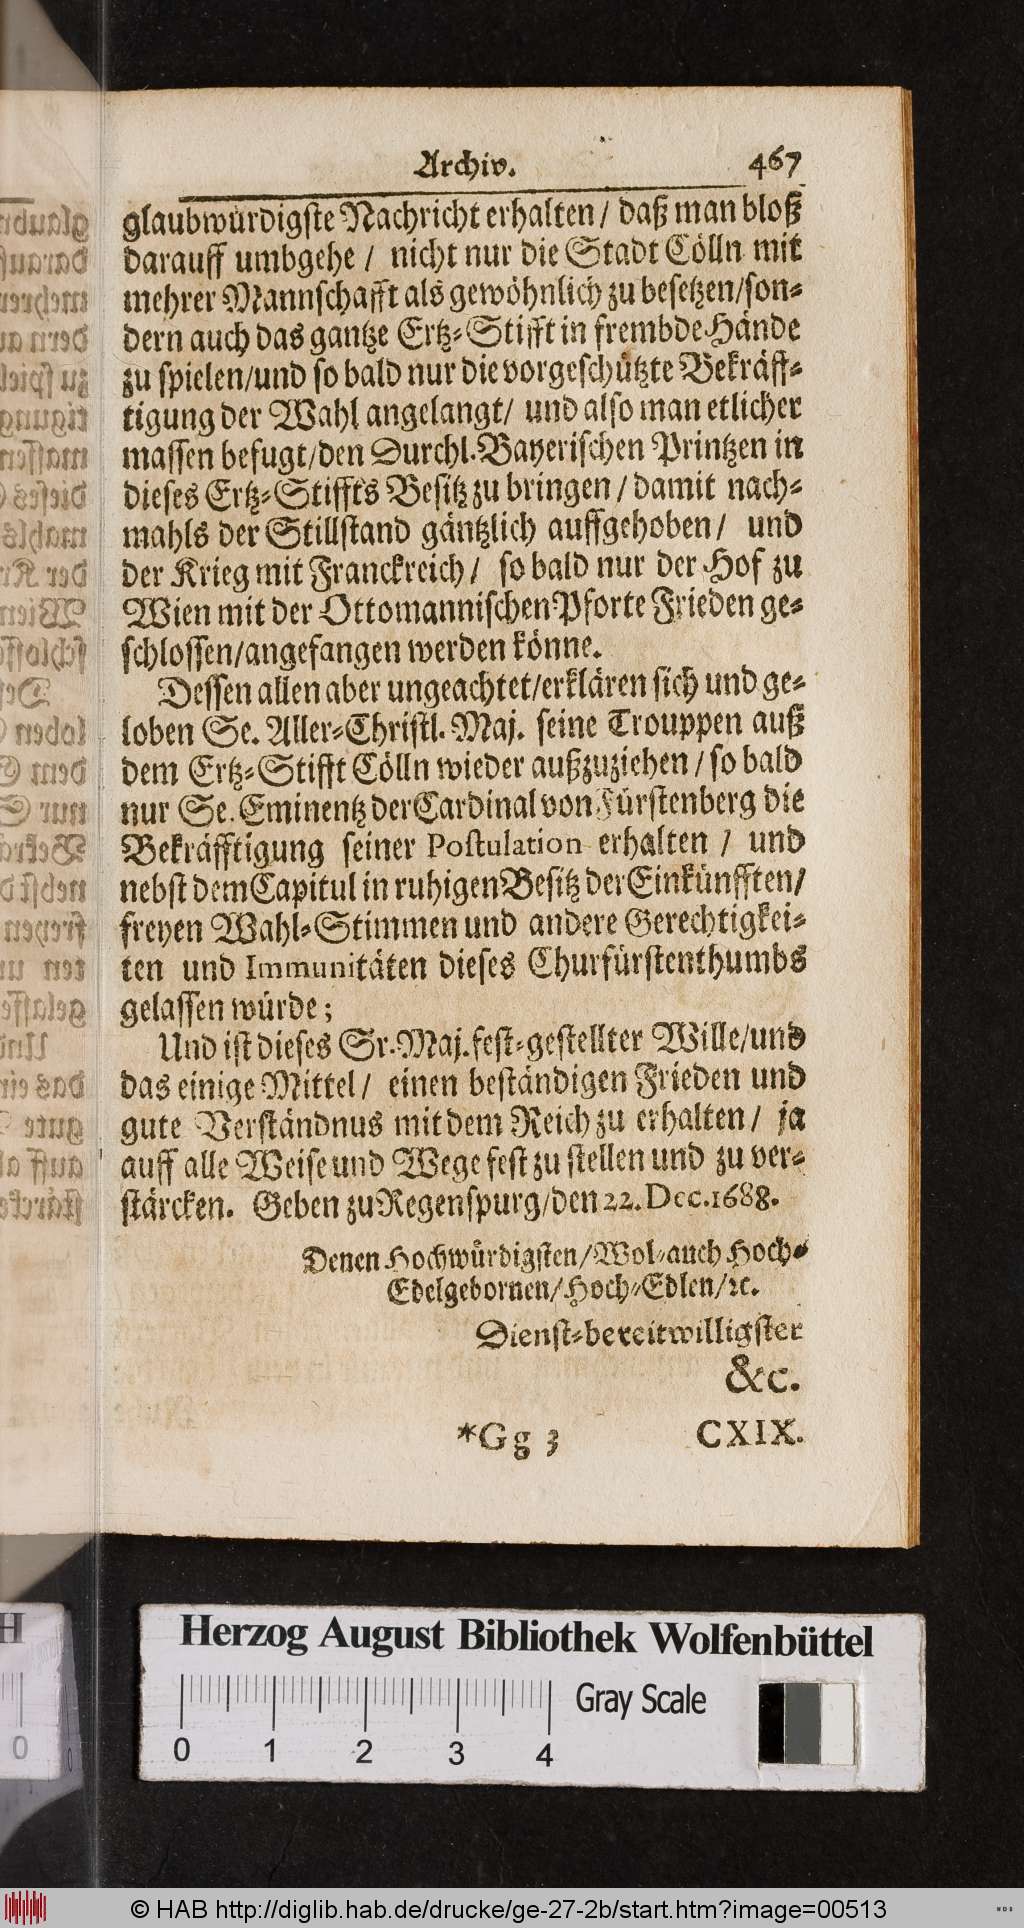 Archiv. 467
glaubwürdigste Nachricht erhalten / daß man bloß
darauff umbgehe / nicht nur die Stadt Cölln mit
mehrer Mannschafft als gewöhnlich zu besetzen/son-
dern auch das gantze Ertz-Stifft in frembde Hände
zu spielen/und so bald nur die vorgeschützte Bekräff-
tigung der Wahl angelangt/ und also man etlicher
massen befugt/den Durchl. Bayerischen Printzen in
dieses Ertz-Stiffts Besitz zu bringen / damit nach-
mahls der Stillstand gäntzlich auffgehoben / und
der Krieg mit Franckreich / so bald nur der Hof zu
Wien mit der Ottomannischen Pforte Frieden ge-
schlossen/angefangen werden könne.
Dessen allen aber ungeachtet/erklären sich und ge-
loben Se. Aller-Christl. Maj. seine Trouppen auß
dem Ertz-Stifft Cölln wieder außzuziehen / so bald
nur Se. Eminentz der Cardinal von Fürstenberg die
Bekräfftigung seiner Postulation erhalten / und
nebst dem Capitul in ruhigen Besitz der Einkünfften/
freyen Wahl-Stimmen und andere Gerechtigkei-
ten und Immunitäten dieses Churfürstenthumbs
gelassen würde;
Und ist dieses Sr. Maj. fest-gestellter Wille/und
das einige Mittel / einen beständigen Frieden und
gute Verständnus mit dem Reich zu erhalten / ja
auff alle Weise und Wege fest zu stellen und zu ver-
stärcken. Geben zu Regenspurg/den 22. Dec. 1688.
Denen Hochwürdigsten/Wol-auch Hoch-
Edelgebornen/Hoch-Edlen/ꝛc.
Dienst-bereitwilligster
&c.
*Gg 3 CXIX.
Herzog August Bibliothek Wolfenbüttel
Gray Scale
0 1 2 3 4
© HAB http://diglib.hab.de/drucke/ge-27-2b/start.htm?image=00513